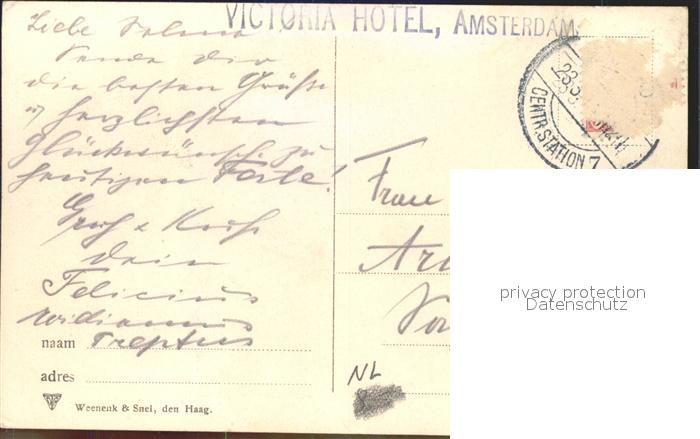 VICTORIA HOTEL, AMSTERDAM.
Liebe Selma
Sende dir
die besten Grüße
u herzlichsten
Glückwünsche zu
heutigen Feste!
Gruß & Kuss
dein
Felicius
naam
adres
Weenenk & Snel, den Haag.
CENTR. STATION 7
Frau
NL
privacy protection
Datenschutz